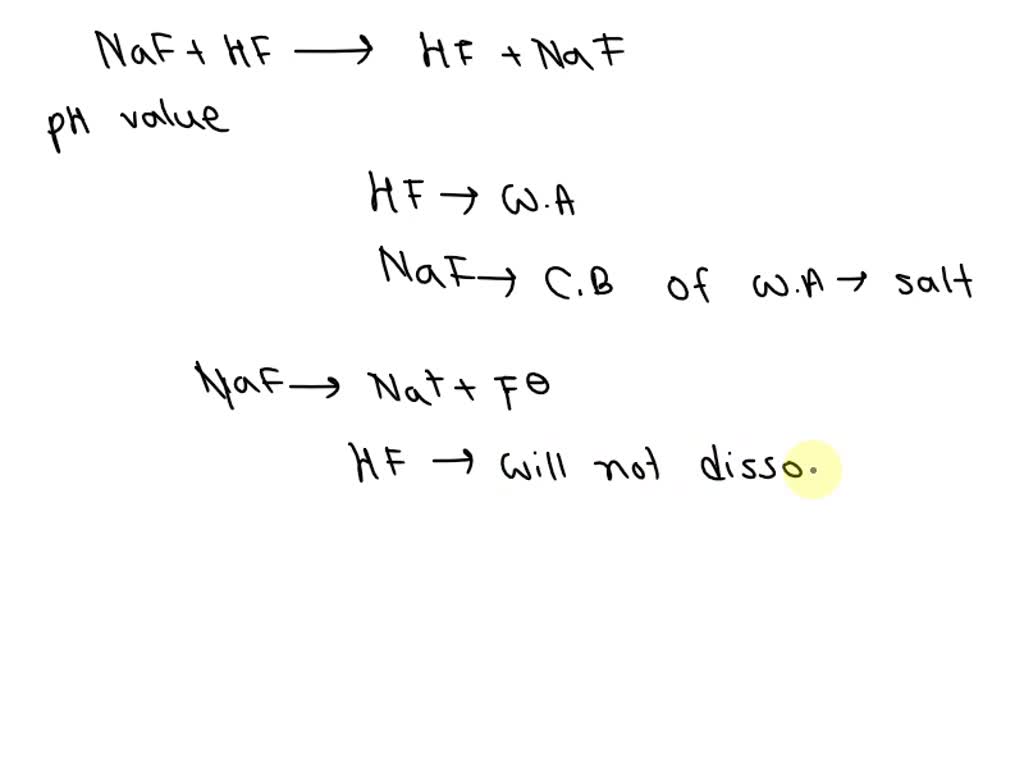 NaF + HF → HF + NaF
pH value
HF → W.A
NaF → C.B of W.A → salt
NaF → Na⁺ + F⊖
HF → will not disso.